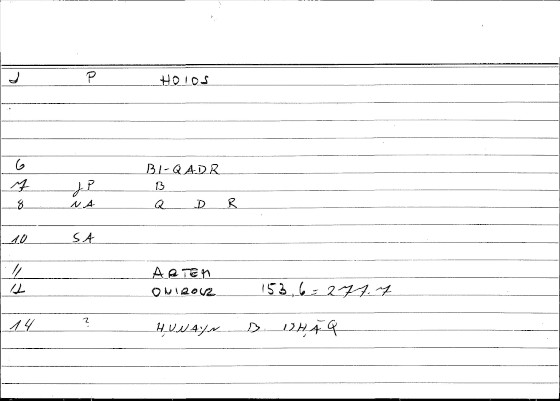 J P HOIOS
6 BI-QADR
7 JP B
8 NA Q D R
10 SA
11 ARTEM
12 ONIROCR 153,6 = 277.7
14 ? ḤUNAYN B ISḤĀQ